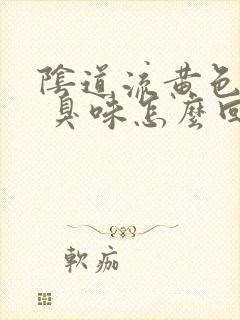 陰道流黃色
臭味怎麼回
軟痂